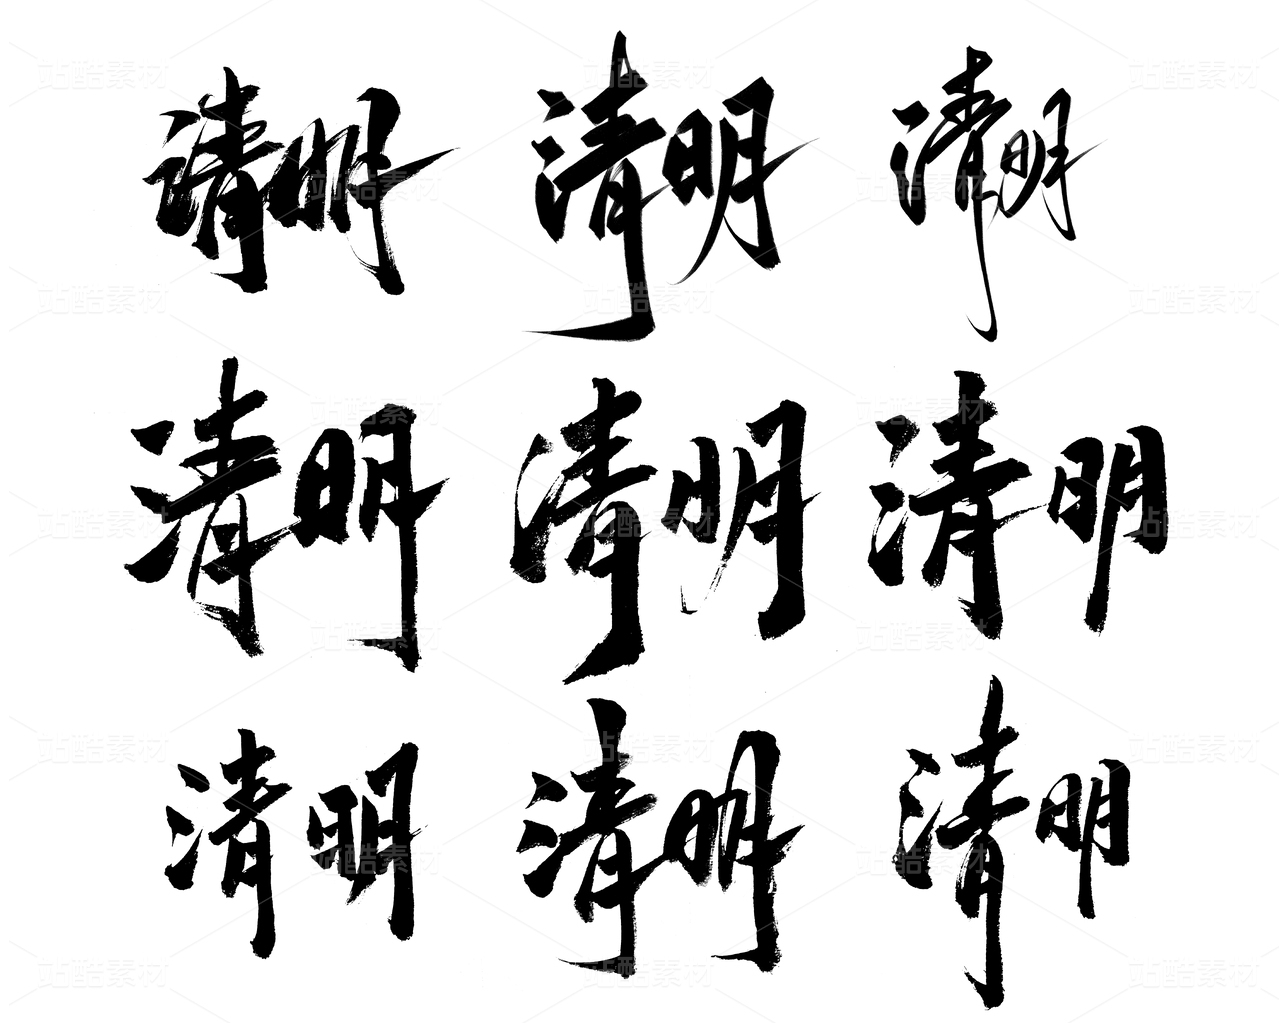 清明 清明 清明
清明 清明 清明
清明 清明 清明
站酷素材